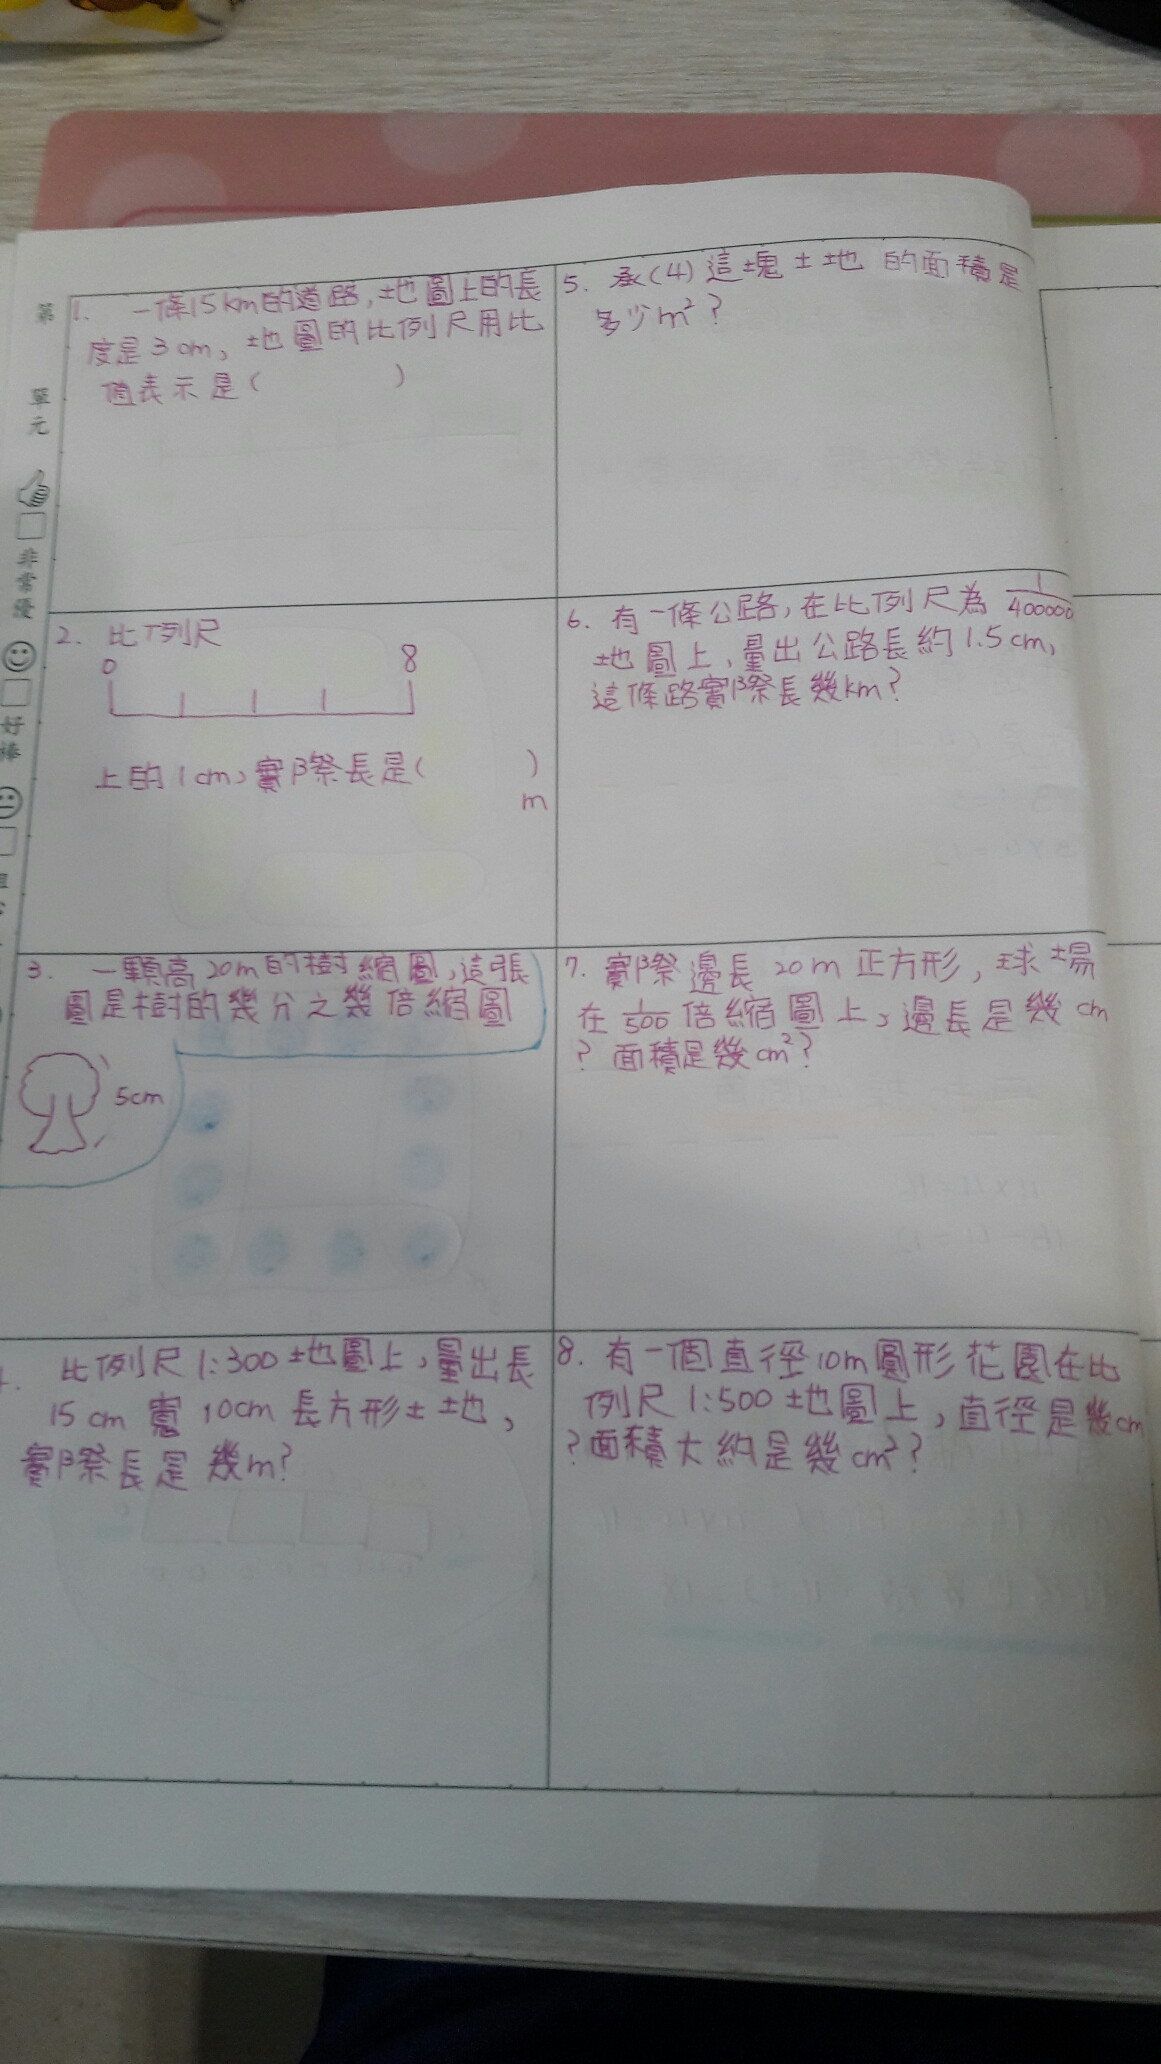 第
單
元
非
常
優
好
棒
1. 一條15km的道路,地圖上的長
度是3cm,地圖的比例尺用比
值表示是( )
2. 比例尺
0 8
上的1cm,實際長是( )
m
3. 一顆高20m的樹縮圖,這張
圖是樹的幾分之幾倍縮圖
5cm
比例尺1:300地圖上,量出長
15cm寬10cm長方形土地,
實際長是幾m?
5. 承(4)這塊土地 的面積是
多少m²?
6. 有一條公路,在比例尺為1/400000
地圖上,量出公路長約1.5cm,
這條路實際長幾km?
7. 實際邊長20m正方形,球場
在1/500倍縮圖上,邊長是幾cm
?面積是幾cm²?
8. 有一個直徑10m圓形花園在比
例尺1:500地圖上,直徑是幾cm
?面積大約是幾cm²?